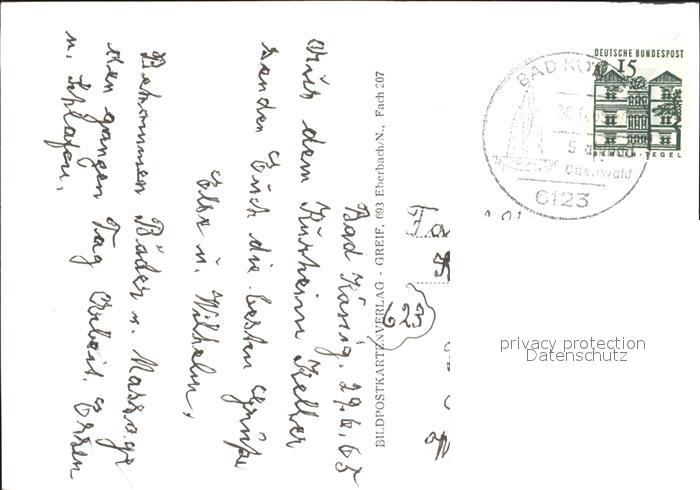 Bad König, 29.6.65
Aus dem Kurheim Keller
senden Euch die besten Grüße
Else u. Wilhelm.
Bekommen Bäder u. Massage
den ganzen Tag Arbeit. Essen
u. Schlafen.
BILDPOSTKARTENVERLAG - GREIF, 693 Eberbach/N., Fach 207
DEUTSCHE BUNDESPOST
15
BERLIN-TEGEL
BAD KÖ
Odenwald
6123
Fa
623
privacy protection
Datenschutz